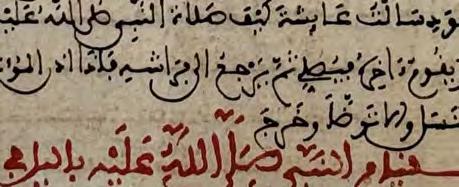 سود سالت عايشة كيف صلاة النبي صلى الله عليه
ويقوم ءاخره فيصلي ثم يرجع الى فراشه فاذا اذن المؤ
تسل والا توضا وخرج
قيام النبي صلى الله عليه باليل في